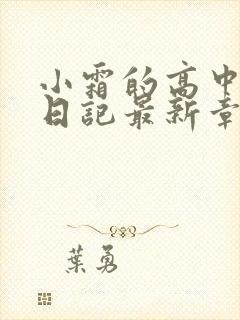 小霜的高中
日記最新章
葉勇